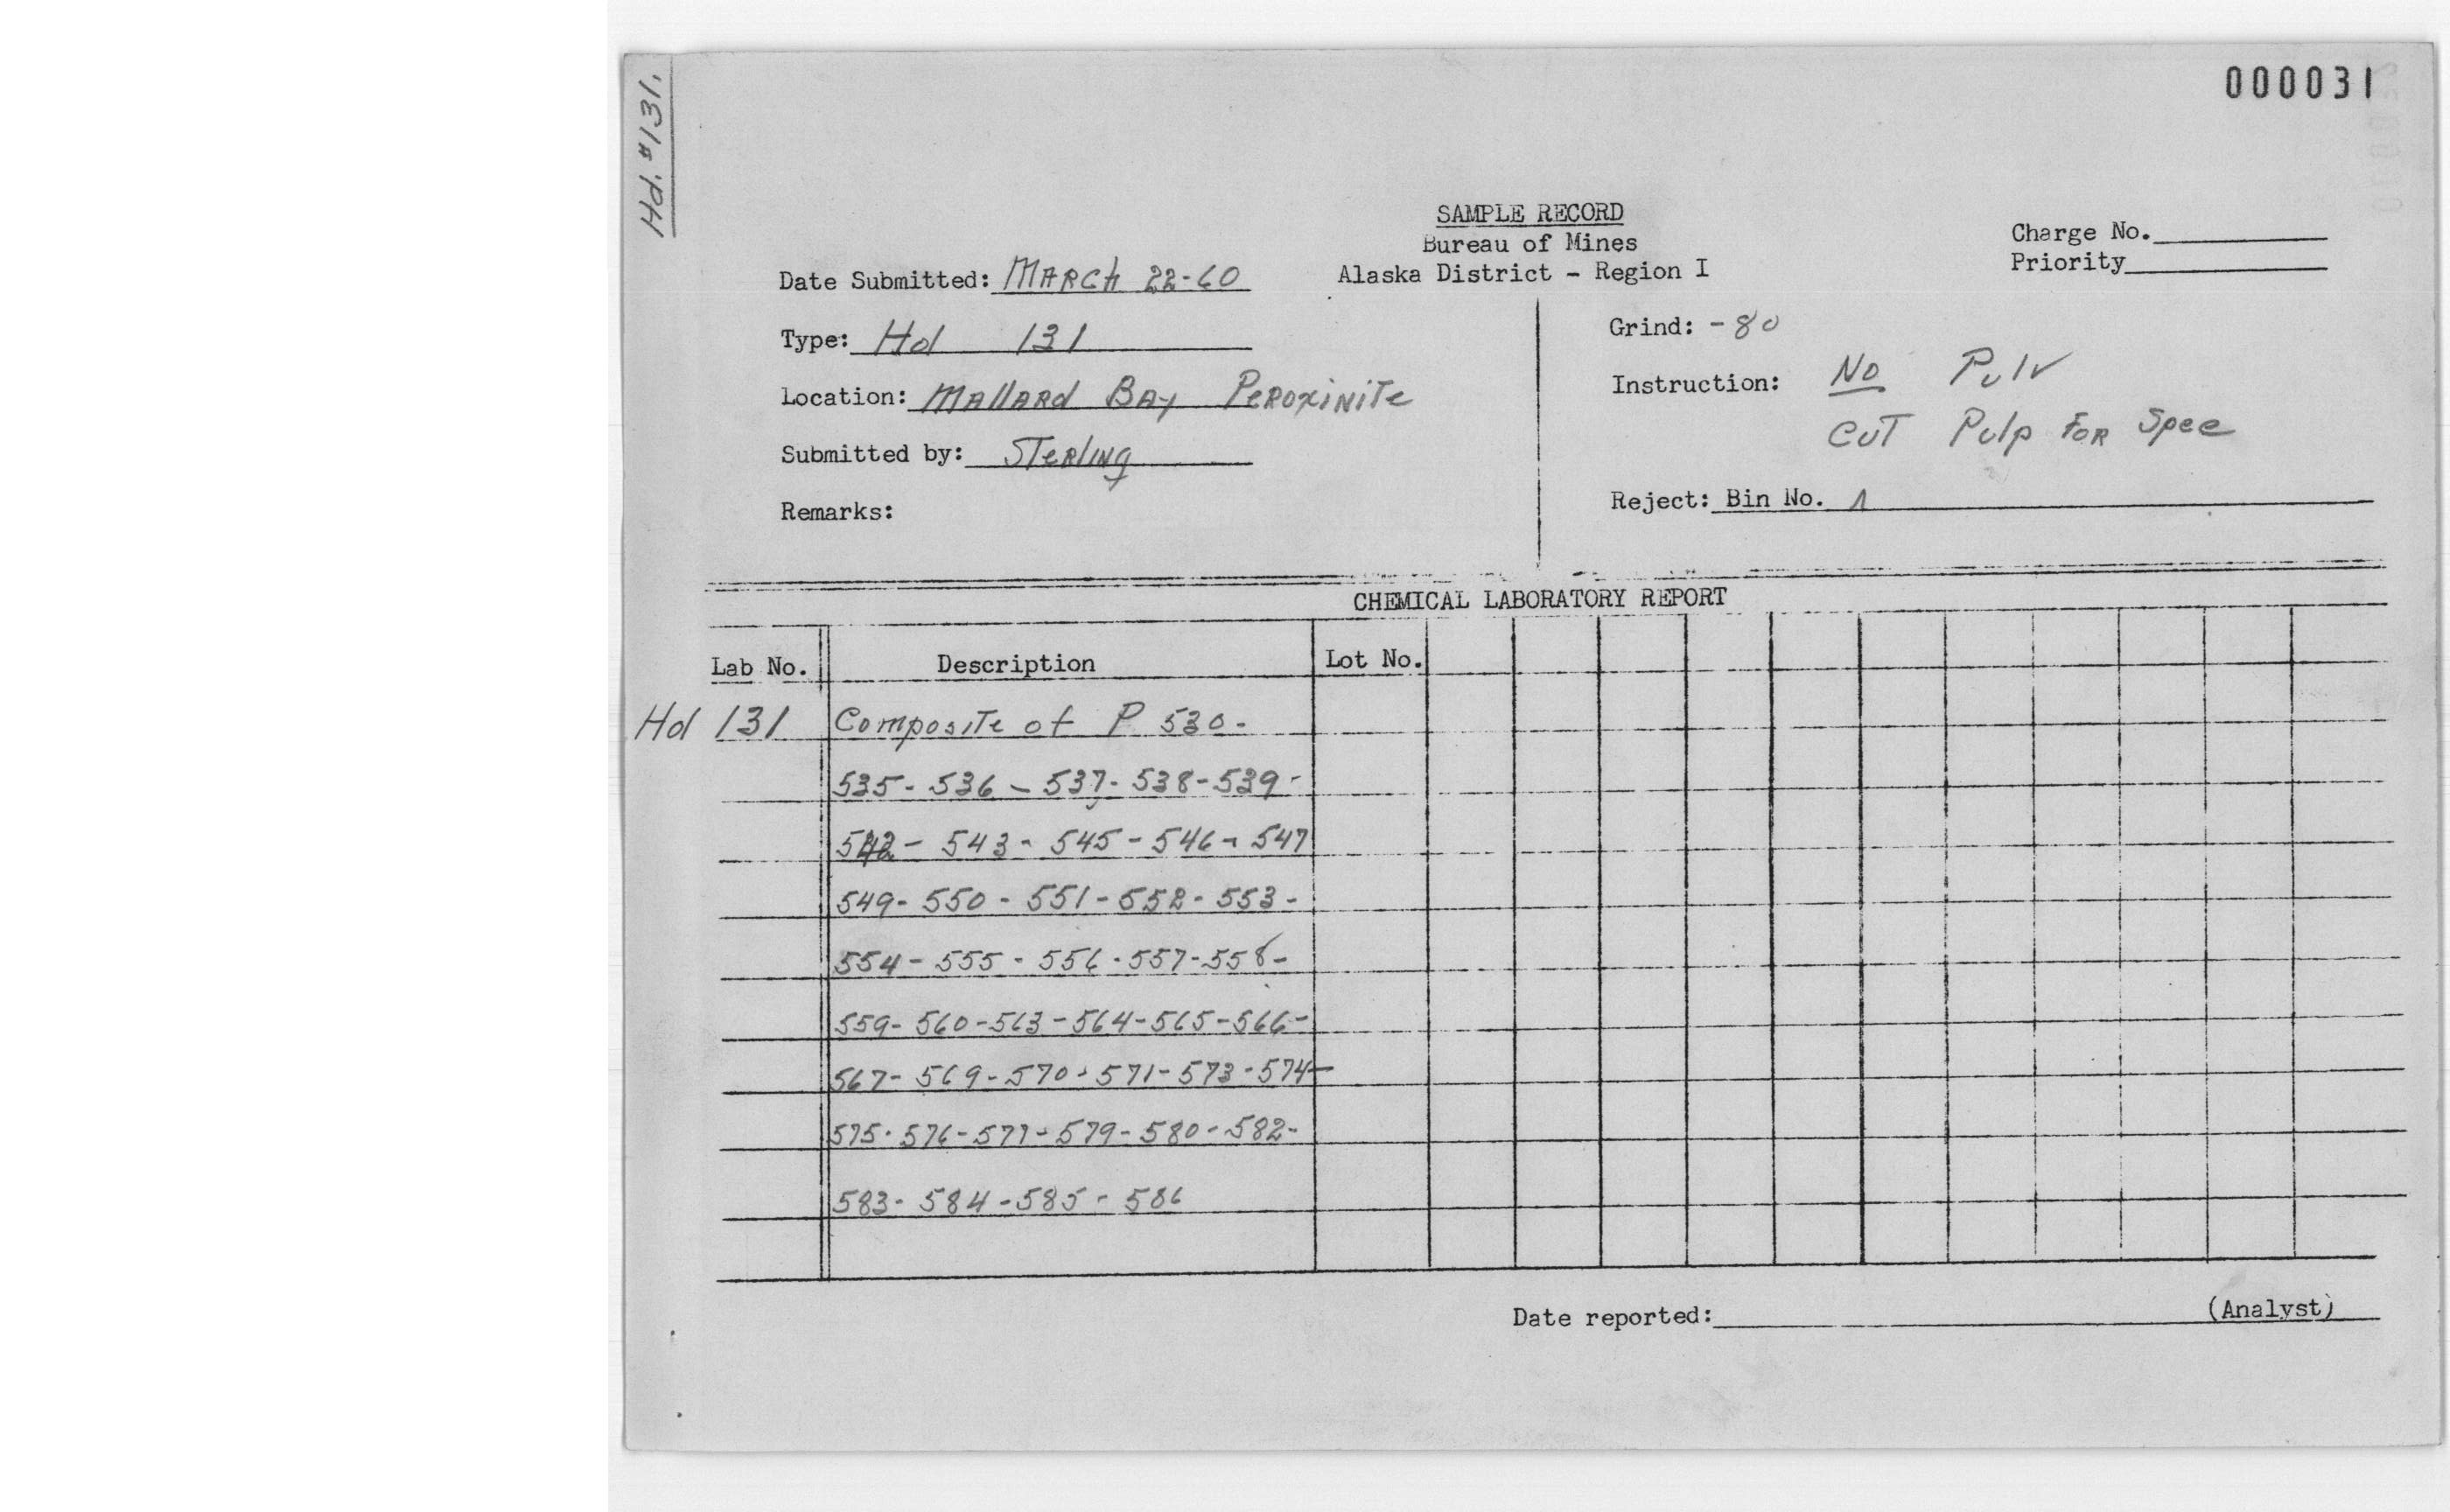 Hd. #131.
000031
SAMPLE RECORD
Bureau of Mines
Alaska District - Region I
Charge No.
Priority
Date Submitted: MARCH 22-60
Type: Hd 131
Location: MAllARd BAy PeROxiNiTe
Submitted by: STeRlINg
Remarks:
Grind: -80
Instruction: No Pulv
CUT Pulp FOR Spec
Reject: Bin No. 1
CHEMICAL LABORATORY REPORT
Lab No. Description Lot No.
Hd 131 Composite of P 530-
535- 536 - 537- 538-539-
542- 543- 545- 546- 547
549- 550- 551- 552- 553-
554- 555- 556- 557-558-
559- 560-563-564-565-566-
567- 569-570-571-573-574-
575-576-577-579-580-582-
583- 584-585- 586
Date reported: (Analyst)